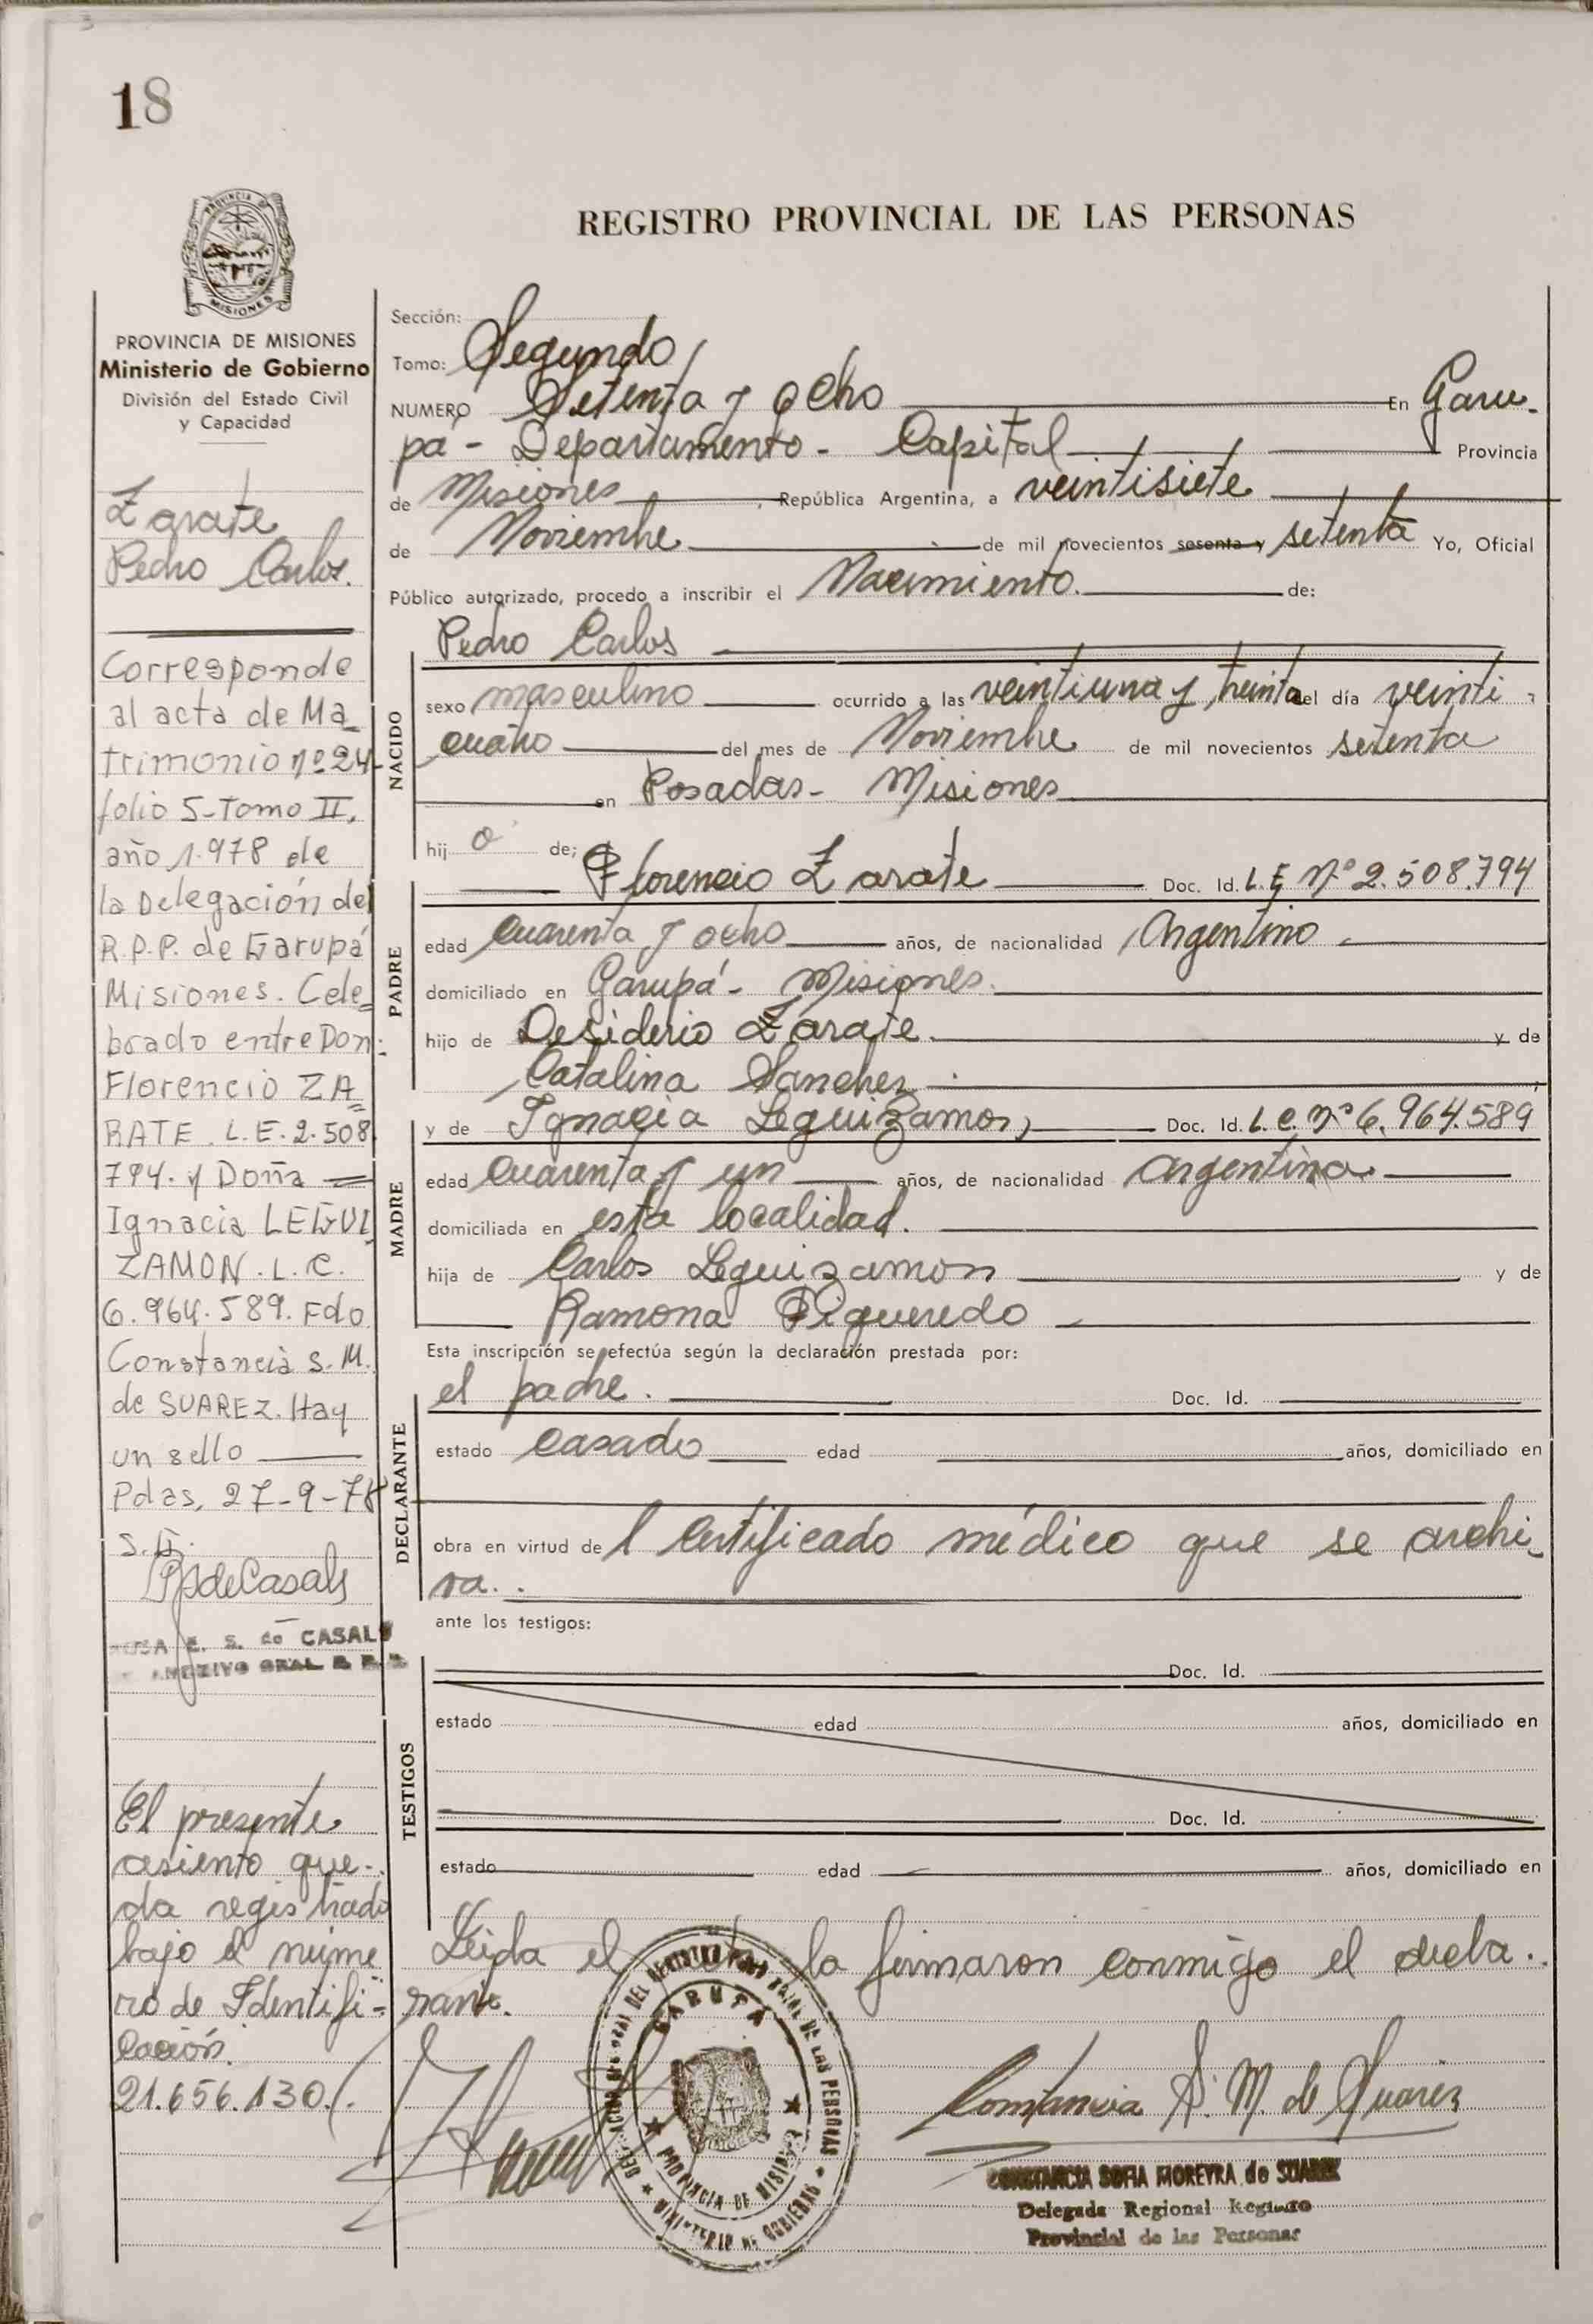 18
REGISTRO PROVINCIAL DE LAS PERSONAS
MISIONES
PROVINCIA DE MISIONES
Ministerio de Gobierno
División del Estado Civil
y Capacidad
Zarate
Pedro Carlos.
Corresponde
al acta de Ma_
trimonio nº 24_
folio 5-Tomo II,
año 1.978 de
la Delegación del
R.P.P. de Garupá
Misiones. Cele=
brado entre Don:
Florencio ZA=
RATE. L.E. 2.508
794. y Doña =
Ignacia LEGUI_
ZAMON. L. C.
6.964.589. Fdo
Constancia S. M.
de SUAREZ. Hay
un sello
Pdas, 27-9-78
E. S. de CASALS
El presente
asiento que-
da registrado
bajo el núme
ro de Identifi-
cación.
21.656.130.
Sección:
Tomo: Segundo
NUMERO Setenta y ocho En Garu-
pá - Departamento - Capital Provincia
de Misiones, República Argentina, a veintisiete
de Noviembre de mil novecientos sesenta y setenta Yo, Oficial
Público autorizado, procedo a inscribir el Nacimiento. de:
Pedro Carlos
NACIDO
sexo masculino ocurrido a las veintiuna y treinta del día veinti-
cuatro del mes de Noviembre de mil novecientos setenta
en Posadas - Misiones
hij o de;
PADRE
Florencio Zarate Doc. Id. L.E Nº 2.508.794
edad cuarenta y ocho años, de nacionalidad Argentino
domiciliado en Garupá - Misiones.
hijo de Desiderio Zarate. y de
Catalina Sanchez
MADRE
y de Ignacia Leguizamon, Doc. Id. L.C. nº 6.964.589
edad cuarenta y un años, de nacionalidad argentina
domiciliada en esta localidad.
hija de Carlos Leguizamon y de
Ramona Figueredo
Esta inscripción se efectúa según la declaración prestada por:
DECLARANTE
el padre. Doc. Id.
estado casado edad años, domiciliado en
obra en virtud de l certificado médico que se archi_
va.
ante los testigos:
TESTIGOS
Doc. Id.
estado edad años, domiciliado en
Doc. Id.
estado edad años, domiciliado en
Leida el la firmaron conmigo el decla.
rante.
GARUPA
PROVINCIA DE MISIONES
MINISTERIO DE GOBIERNO
Constancia S. M. de Suarez
CONSTANCIA SOFIA MOREYRA de SUAREZ
Delegada Regional Registro
Provincial de las Personas